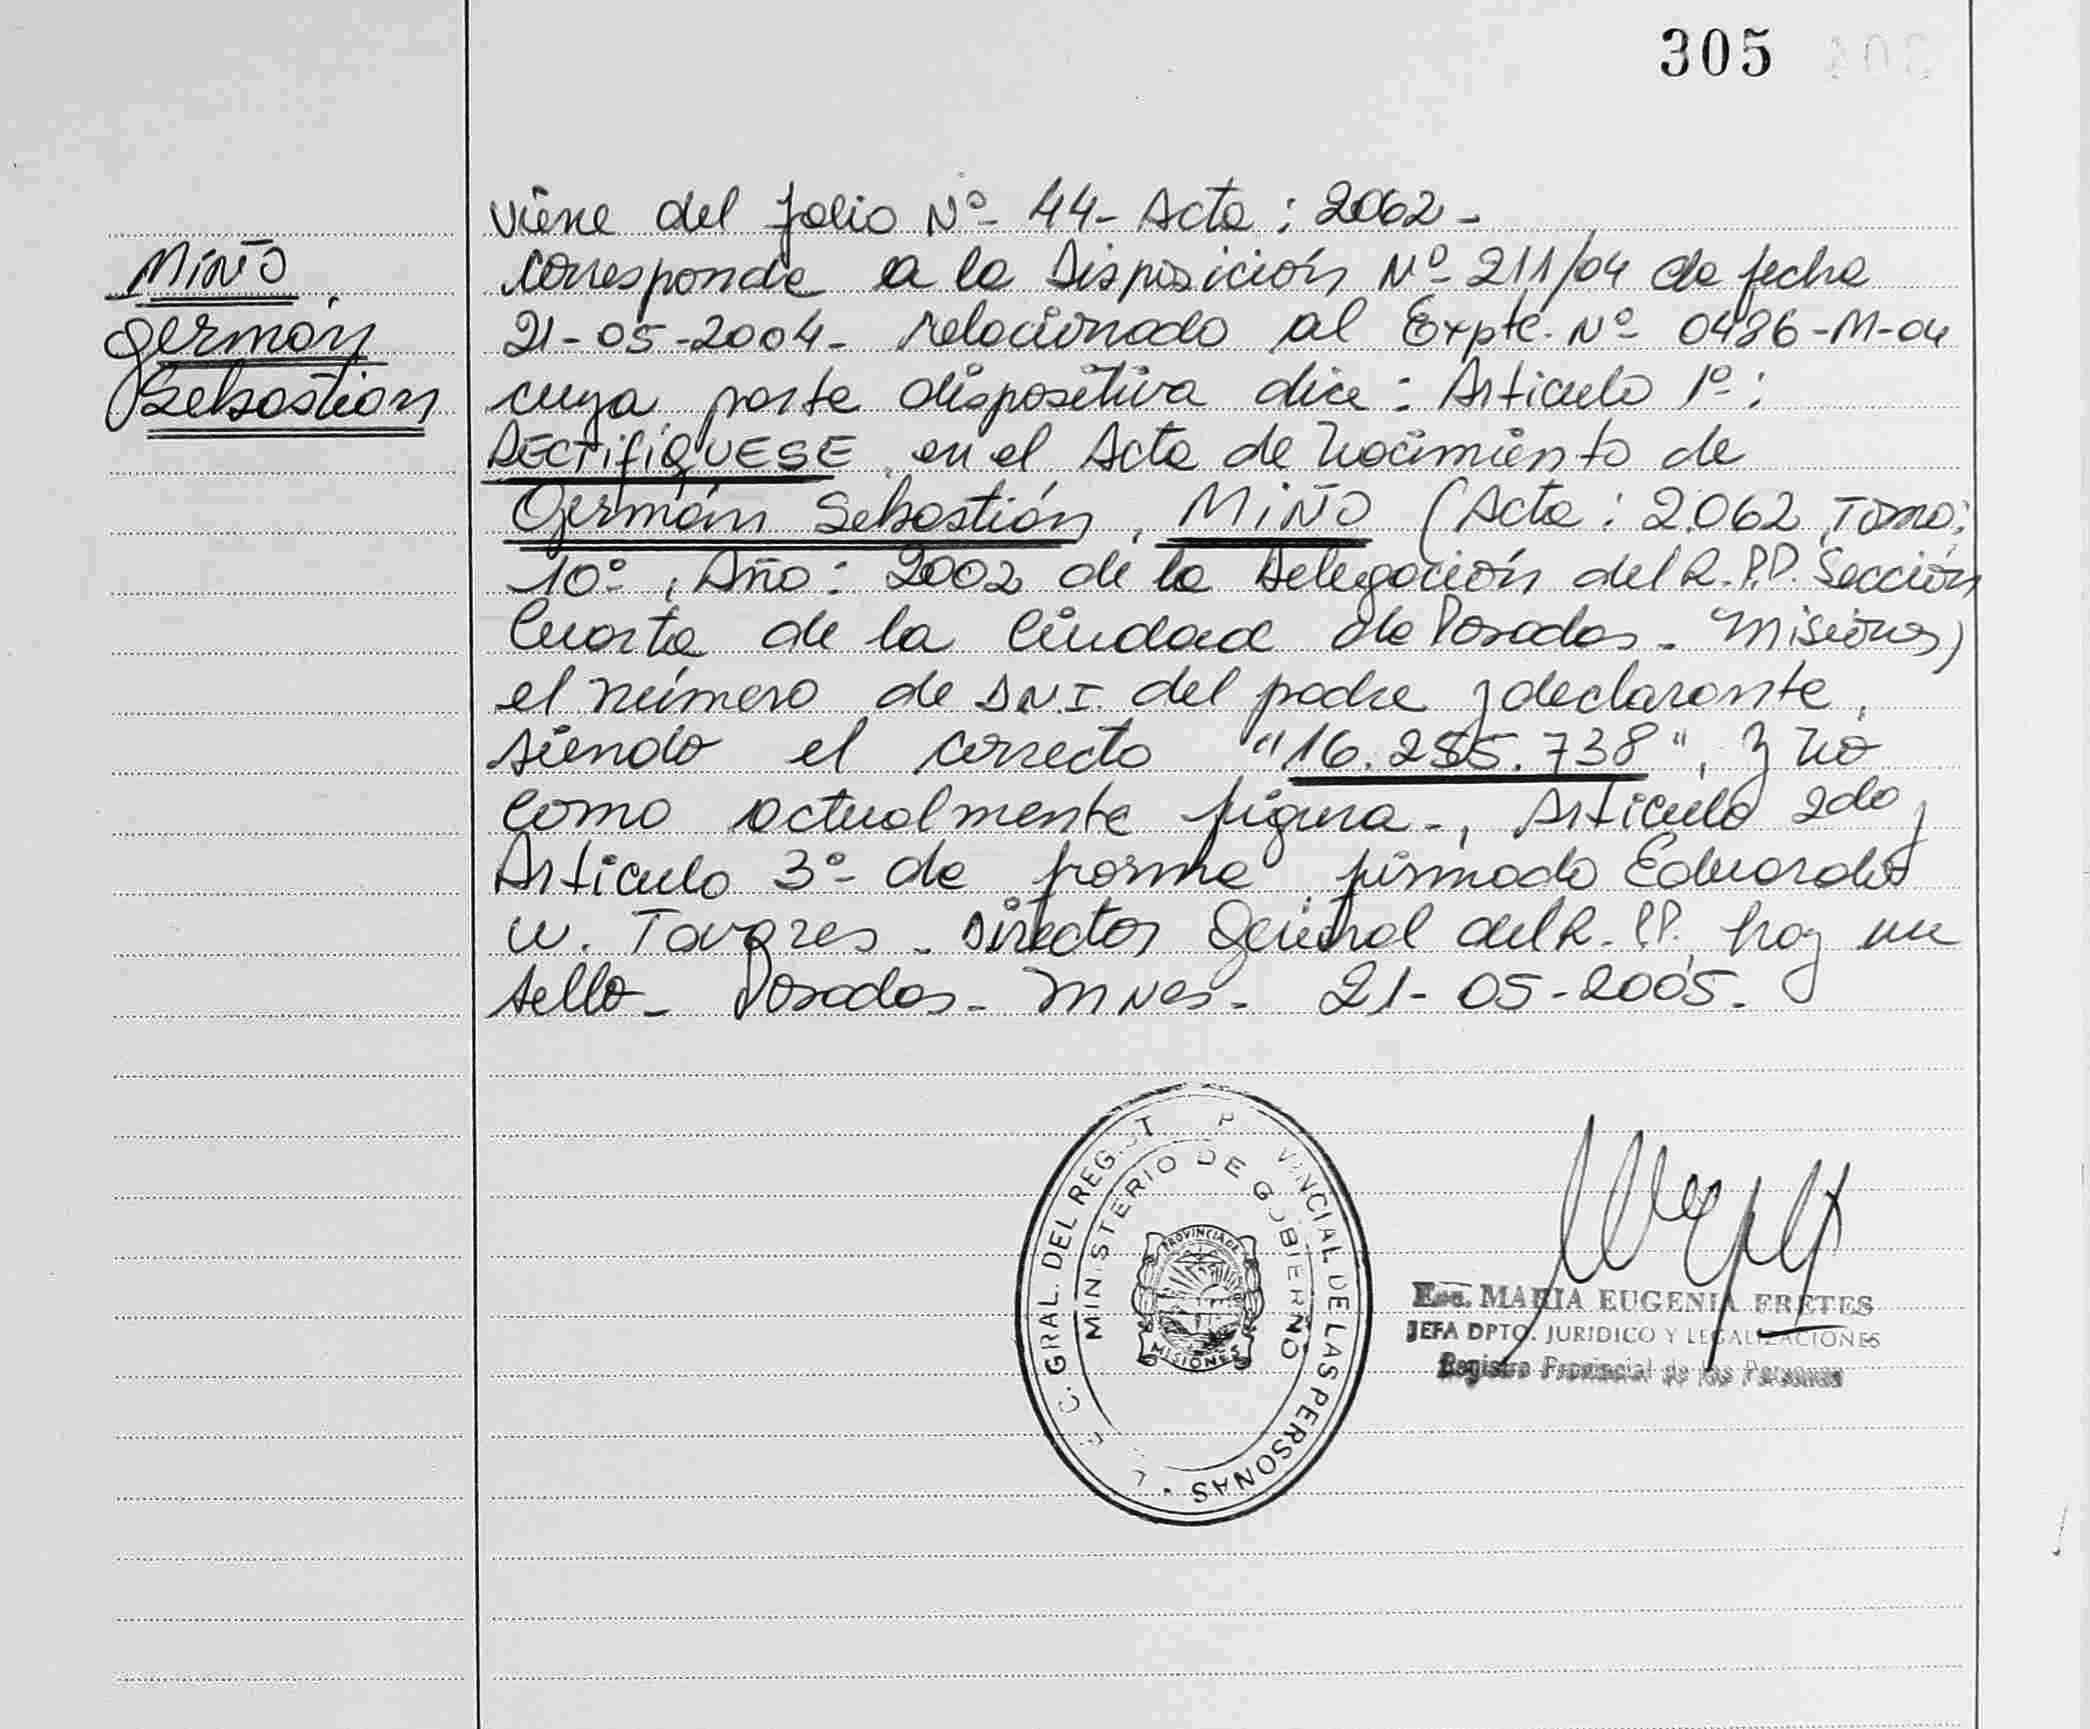 305
MiÑO,
Germán
Sebastián
Viene del folio Nº- 44- Acta: 2062-
Corresponde a la Disposición Nº- 211/04 de fecha
21-05-2004- relacionado al Expte. Nº- 0486-M-04
cuya parte dispositiva dice: Articulo 1º-:
RECTIFIQUESE en el Acta de Nacimiento de
Germán Sebastián, MIÑO (Acta: 2.062, Tomo:
10º-, Año: 2002 de la Delegación del R.P.P. Sección
Cuarta de la Ciudad de Posadas- Misiones)
el número de D.N.I. del padre y declarante,
siendo el correcto "16.255.738", y no
como actualmente figura-, Articulo 2do y
Articulo 3º- de forma firmado Eduardo
W. Tavares- Director General del R.P.P. hay un
sello- Posadas- Mnes- 21-05-2005-
GRAL. DEL REGIST P VINCIAL DE LAS PERSONAS
MINISTERIO DE GOBIERNO
PROVINCIA DE
MISIONES
Esc. MARIA EUGENIA FRETES
JEFA DPTO. JURIDICO Y LEGALIZACIONES
Registro Provincial de las Personas